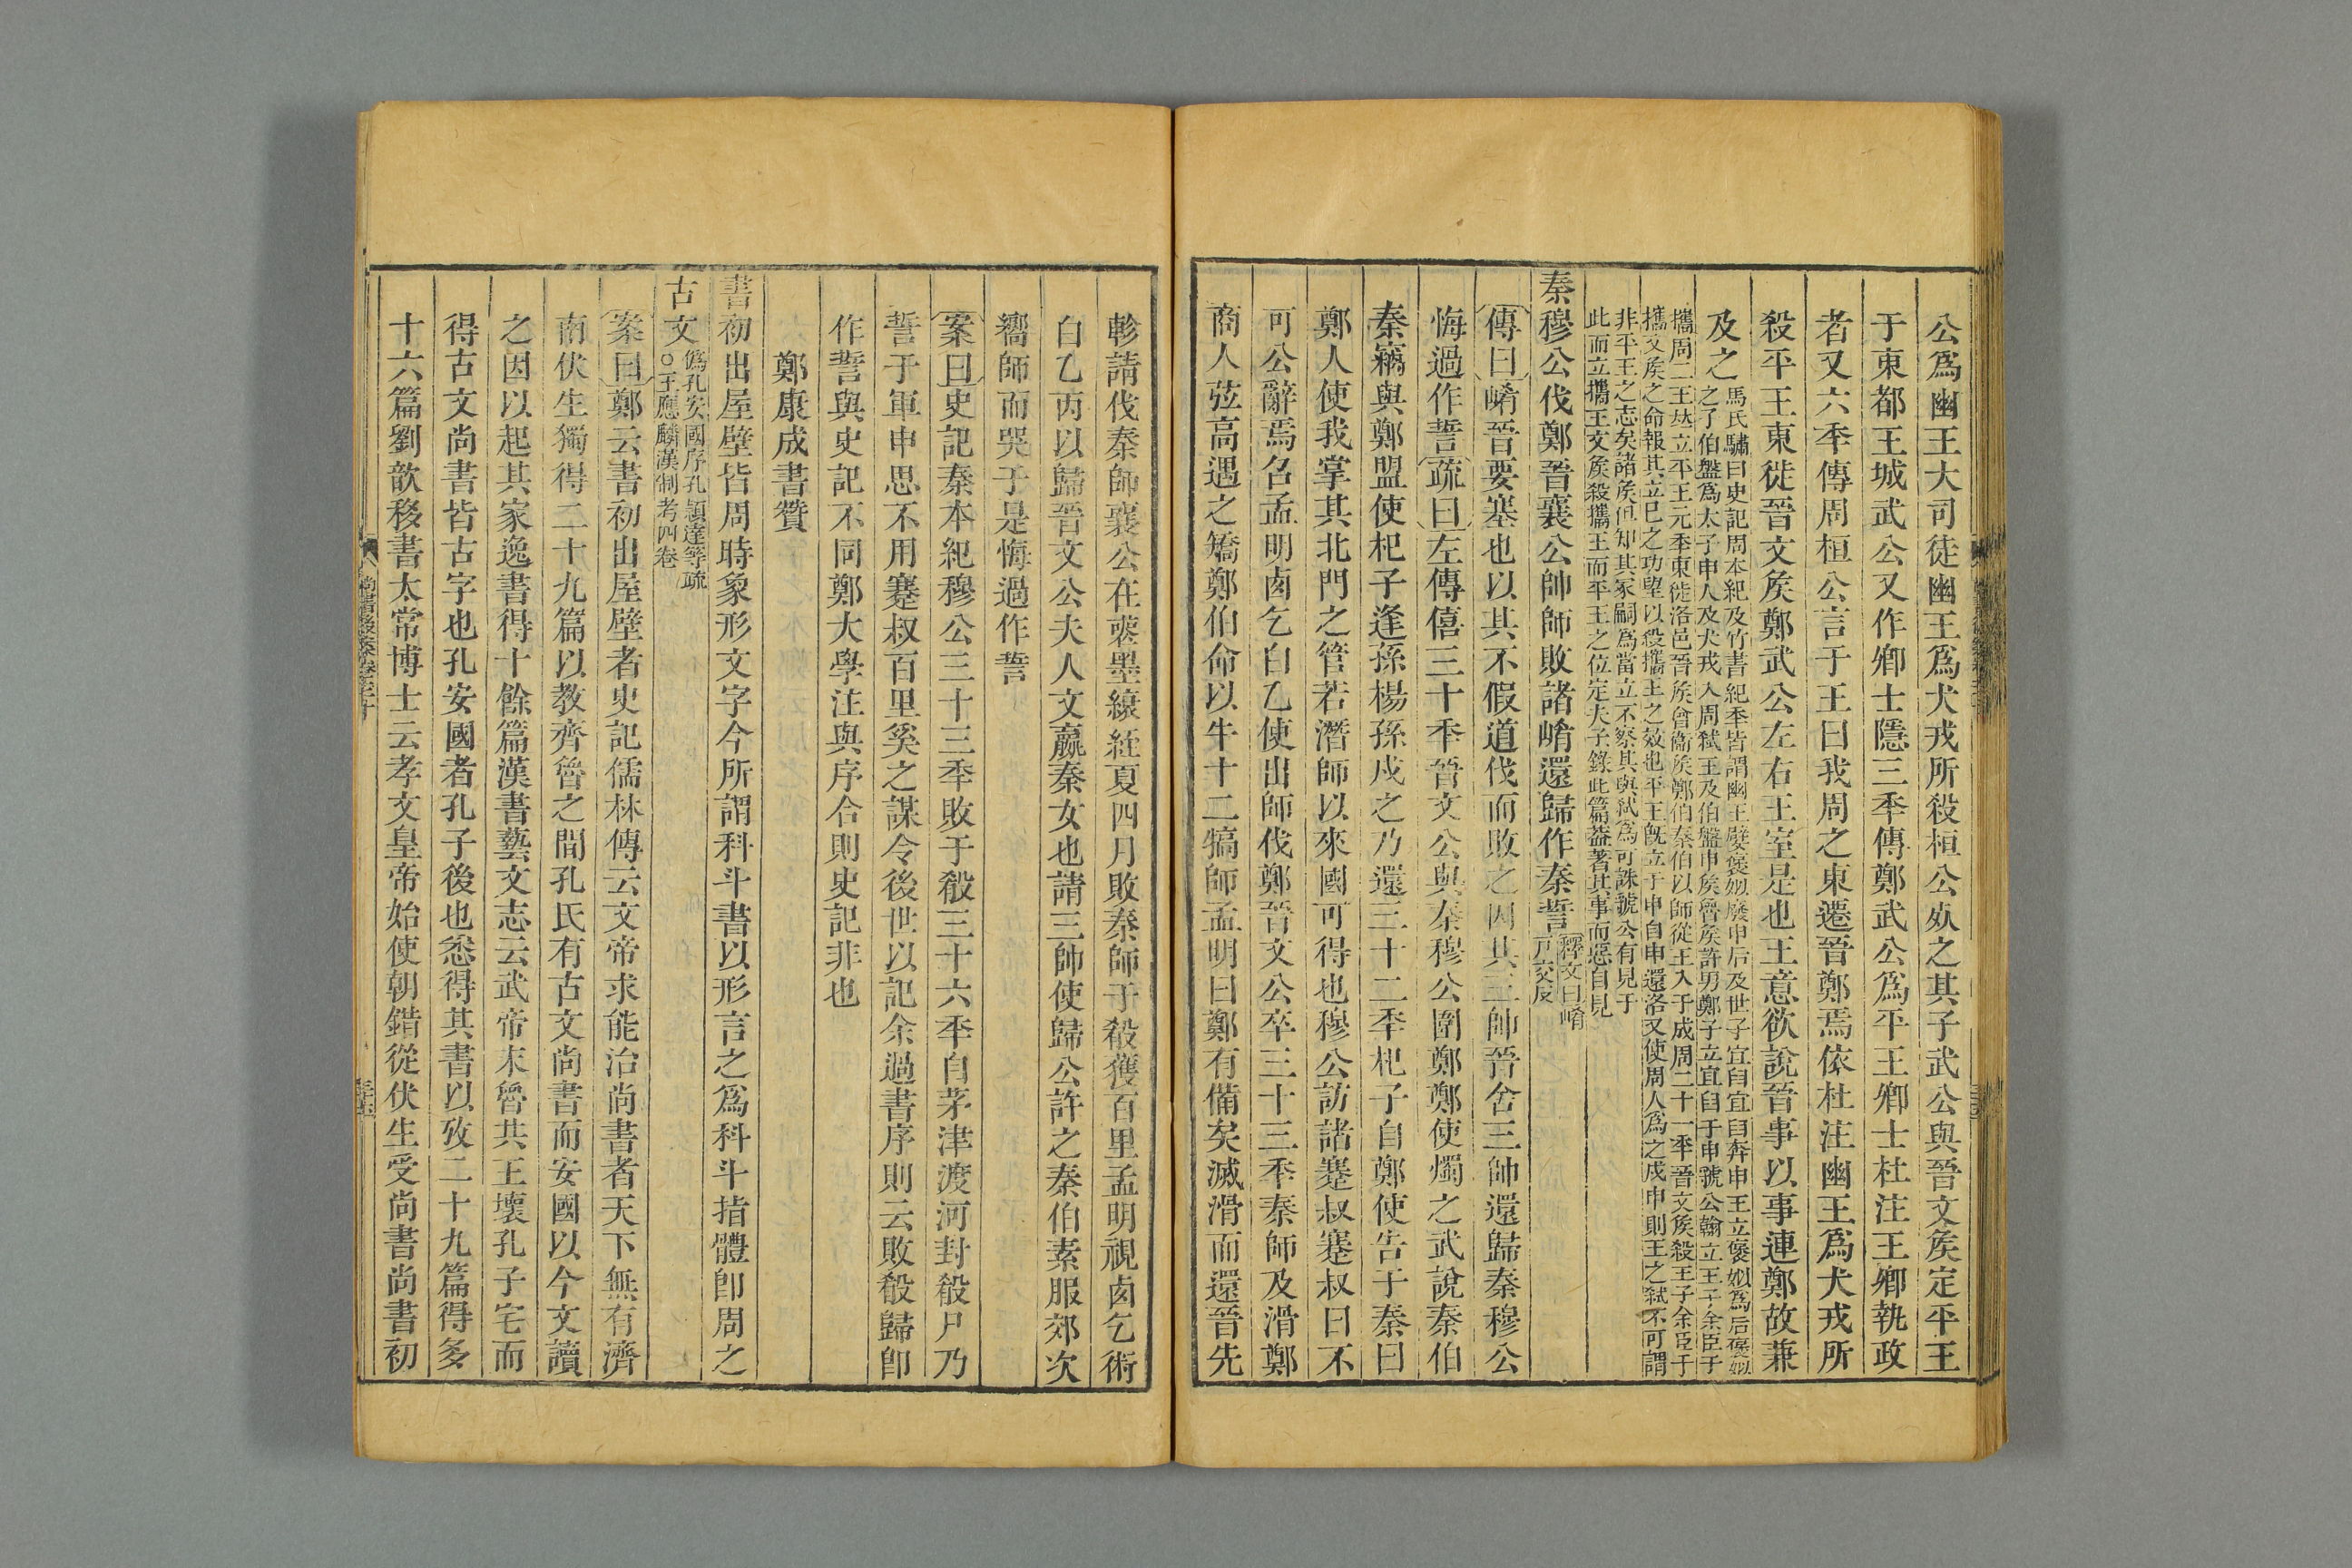 公爲幽王大司徒幽王爲犬戎所殺桓公𣦸之其子武公與晉文矦定平王
于東都王城武公又作卿士隱三秊傳鄭武公爲平王卿士杜注王卿執政
者又六秊傳周桓公言于王曰我周之東遷晉鄭焉依杜注幽王爲犬戎所
殺平王東徙晉文矦鄭武公左右王室是也王意欲說晉事以事連鄭故兼
及之
馬氏驌曰史記周本紀及竹書紀秊皆謂幽王嬖褒姒廢申后及世子宜臼宜臼奔申王立褒姒爲后褒姒
之子伯盤爲太子申人及犬戎入周弒王及伯盤申矦魯矦許男鄭子立宜臼于申虢公翰立王子余臣于
攜周二王𠀤立平王元秊東徙洛邑晉矦會衞矦鄭伯秦伯以師從王入于成周二十一秊晉文矦殺王子余臣于
攜文矦之命報其立已之功望以殺攜王之效也平王旣立于申自申還洛又使周人爲之戍申則王之弒不可謂
非平王之志矣諸矦但知其冢嗣爲當立不察其與弒爲可誅虢公有見于
此而立攜王文矦殺攜王而平王之位定夫子錄此篇葢著其事而惡自見
秦穆公伐鄭晉襄公帥師敗諸崤還歸作秦誓
釋文曰崤
戸交反
傳曰崤晉要塞也以其不假道伐而敗之囚其三帥晉舍三帥還歸秦穆公
悔過作誓疏曰左傳僖三十秊晉文公與秦穆公圍鄭鄭使燭之武說秦伯
秦竊與鄭盟使杞子逢孫楊孫戍之乃還三十二秊杞子自鄭使告于秦曰
鄭人使我掌其北門之管若潛師以來國可得也穆公訪諸蹇叔蹇叔曰不
可公辭焉召孟明卤乞白乙使出師伐鄭晉文公卒三十三秊秦師及滑鄭
商人弦高遇之矯鄭伯命以牛十二犒師孟明曰鄭有備矣滅滑而還晉先
軫請伐秦師襄公在䘮墨縗絰夏四月敗秦師于殽獲百里孟明視卤乞術
白乙丙以歸晉文公夫人文嬴秦女也請三帥使歸公許之秦伯素服郊次
嚮師而哭于是悔過作誓
案曰史記秦本紀穆公三十三秊敗于殽三十六秊自茅津渡河封殽尸乃
誓于軍申思不用蹇叔百里奚之謀令後世以記余過書序則云敗殽歸卽
作誓與史記不同鄭大學注與序合則史記非也
鄭康成書贊
書初出屋壁皆周時象形文字今所謂科斗書以形言之爲科斗指體卽周之
古文
僞孔安國序孔穎達等疏
○王應麟漢制考四卷
案曰鄭云書初出屋壁者史記儒林傳云文帝求能治尚書者天下無有濟
南伏生獨得二十九篇以敎齊魯之間孔氏有古文尚書而安國以今文讀
之因以起其家逸書得十餘篇漢書藝文志云武帝末魯共王壞孔子宅而
得古文尚書皆古字也孔安國者孔子後也悉得其書以攷二十九篇得多
十六篇劉歆移書太常博士云孝文皇帝始使朝錯從伏生受尚書尚書初